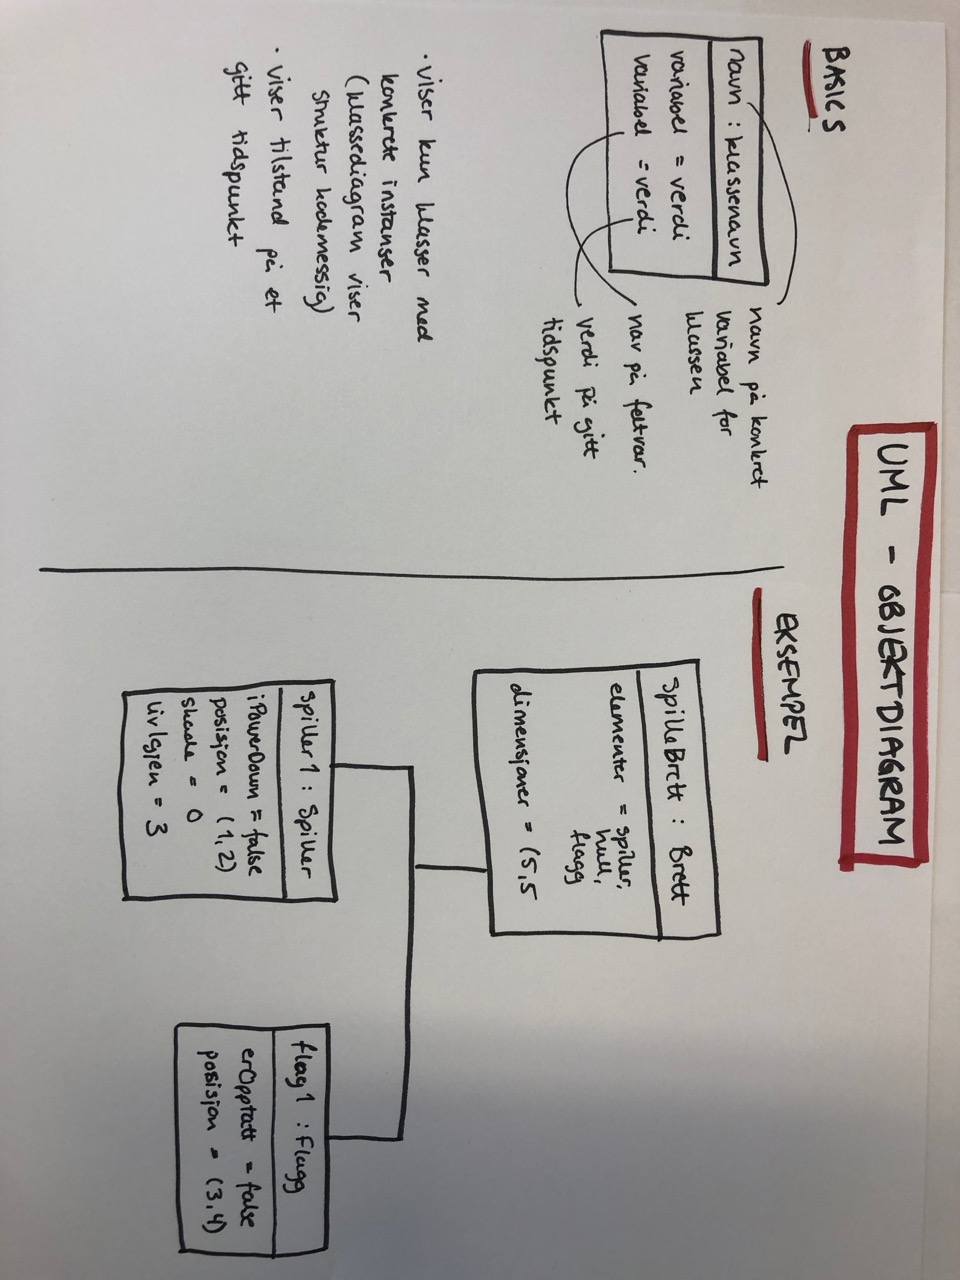 UML - OBJEKTDIAGRAM
BASICS
navn : klassenavn
variabel = verdi
variabel = verdi
navn på konkret
variabel for
klassen
nav på feltvar.
verdi på gitt
tidspunkt
· viser kun klasser med
konkrete instanser
(klassediagram viser
struktur kodemessig)
· viser tilstand på et
gitt tidspunkt
EKSEMPEL
SpilleBrett : Brett
elementer = spiller,
hull,
flagg
dimensjoner = (5,5
spiller1 : Spiller
iPowerDown = false
posisjon = (1,2)
skade = 0
liv igjen = 3
flag1 : Flagg
erOpptatt = false
posisjon = (3,4)